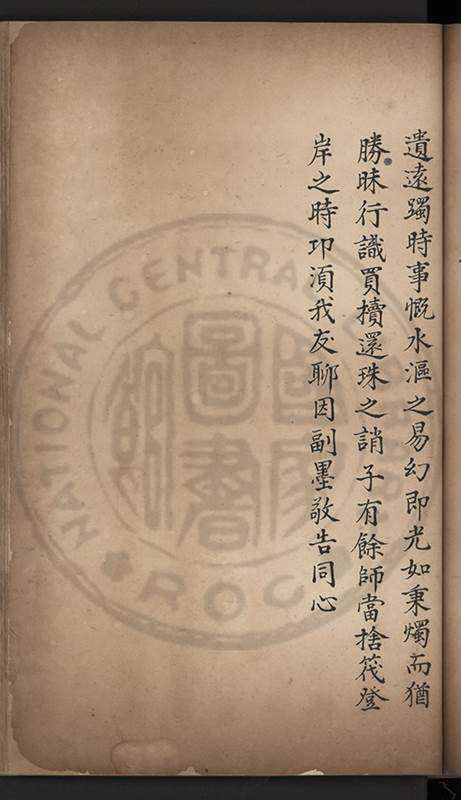 遺遠躅時事慨水漚之易幻即光如秉燭而猶
勝昧行識買櫝還珠之誚子有餘師當捨筏登
岸之時卭湏我友聊因副墨敬告同心
國家圖書館
NATIONAL CENTRAL LIBRARY
ROC